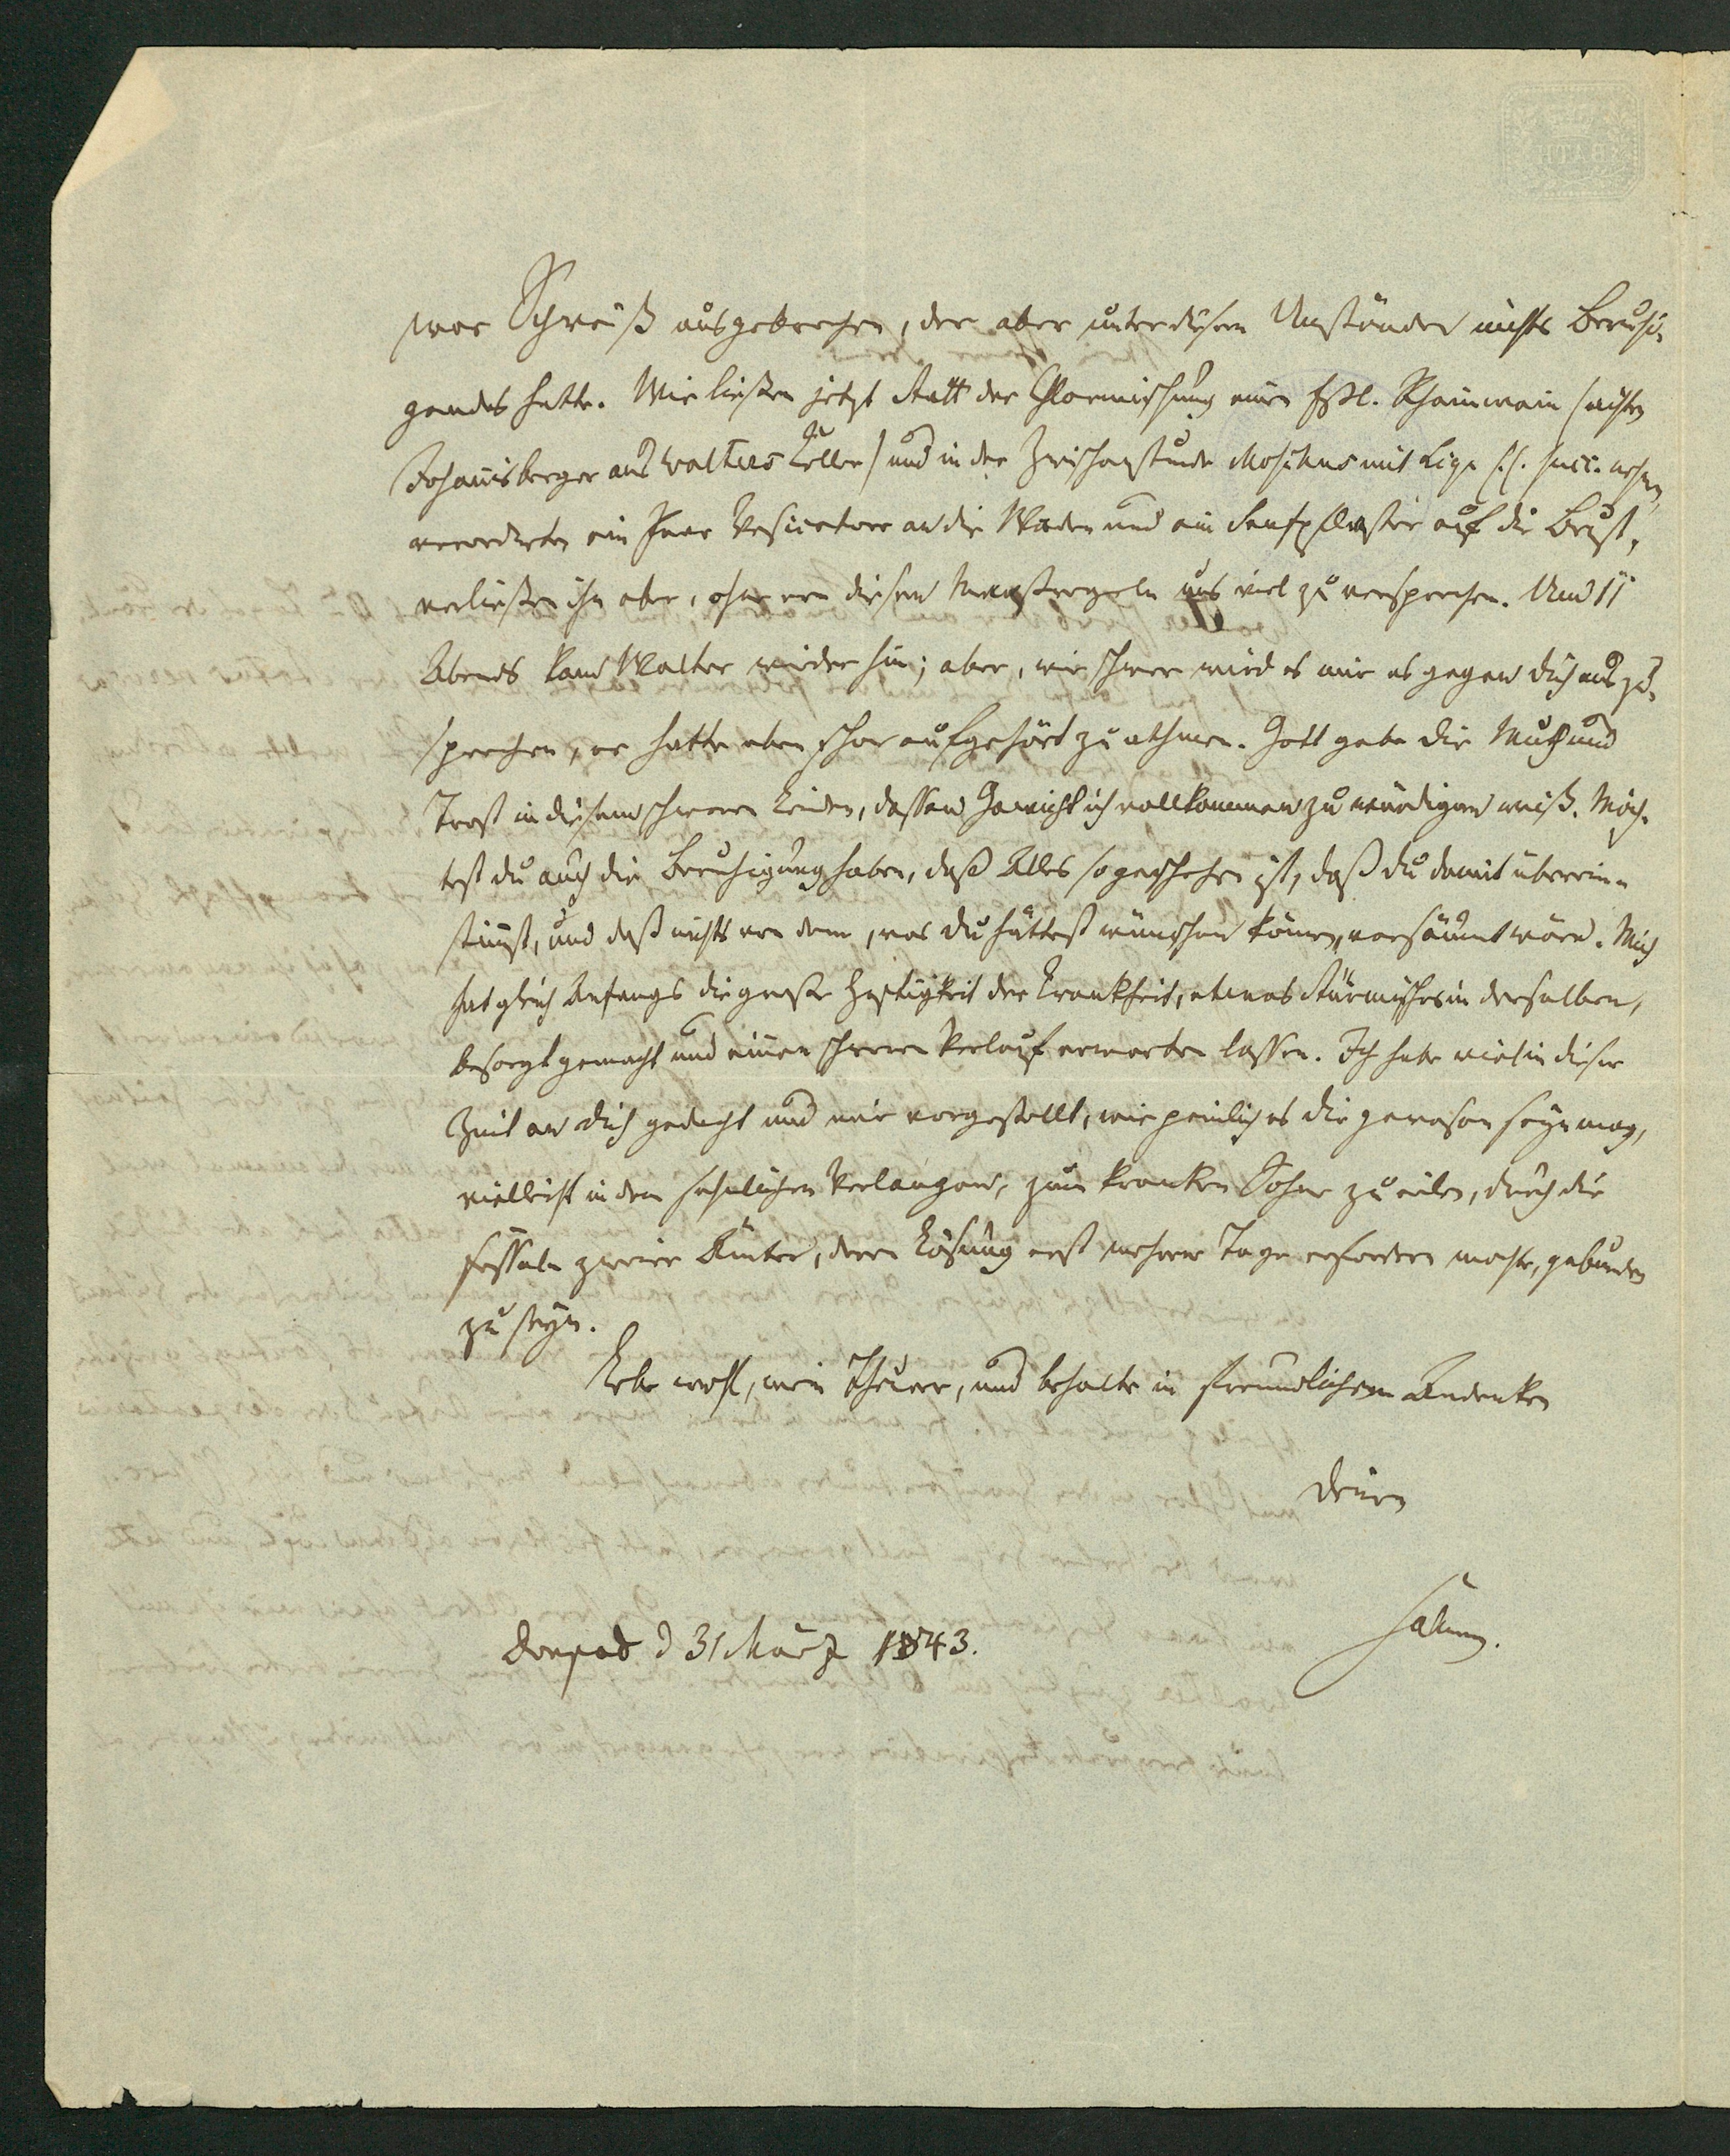 war Schweiß ausgebrochen, der aber unter diesen Umständen nichts Beruhi-
gendes hatte. Wir ließen jetzt statt der Chlormischung einen Eßl. Rheinwein (achten
Johannisberger aus Walters Keller) und in der Zwischenstunde Moschus mit Liq. c.c. succ. nehmen,
verordneten ein Paar Vesicatore an die Waden und ein Senfpflaster auf die Brust,
verließen ihn aber, ohne von diesen Maasregeln uns viel zu versprechen. Um 11
Abends kam Walter wieder hin; aber, wie schwer wird es mir es gegen dich auszu-
sprechen, er hatte eben schon aufgehört zu athmen. Gott gebe dir Muth und
Trost in diesem schweren Leiden, dessen Gewicht ich vollkommen zu würdigen weiß. Möch-
test du auch die Beruhigung haben, daß Alles so geschehen ist, daß du damit überein-
stimmst, und daß nichts von dem, was du hättest wünschen können, versäumt wäre. Mich
hat gleich Anfangs die große Heftigkeit der Krankheit, etwas Stürmisches in derselben,
besorgt gemacht und einen schweren Verlauf erwarten lassen. Ich habe viel in dieser
Zeit an dich gedacht und mir vorgestellt, wie peinlich es dir gewesen seyn mag,
vielleicht in dem sehnlichen Verlangen, zum kranken Sohne zu eilen, durch die
Fesseln zweier Ämter, deren Lösung erst mehrere Tage erfordern mochte, gebunden
zu seyn.
Lebe wohl, mein Theurer, und behalte in freundlichem Andenken
Deinen
Sahmen.
Dorpat d 31 März 1843.